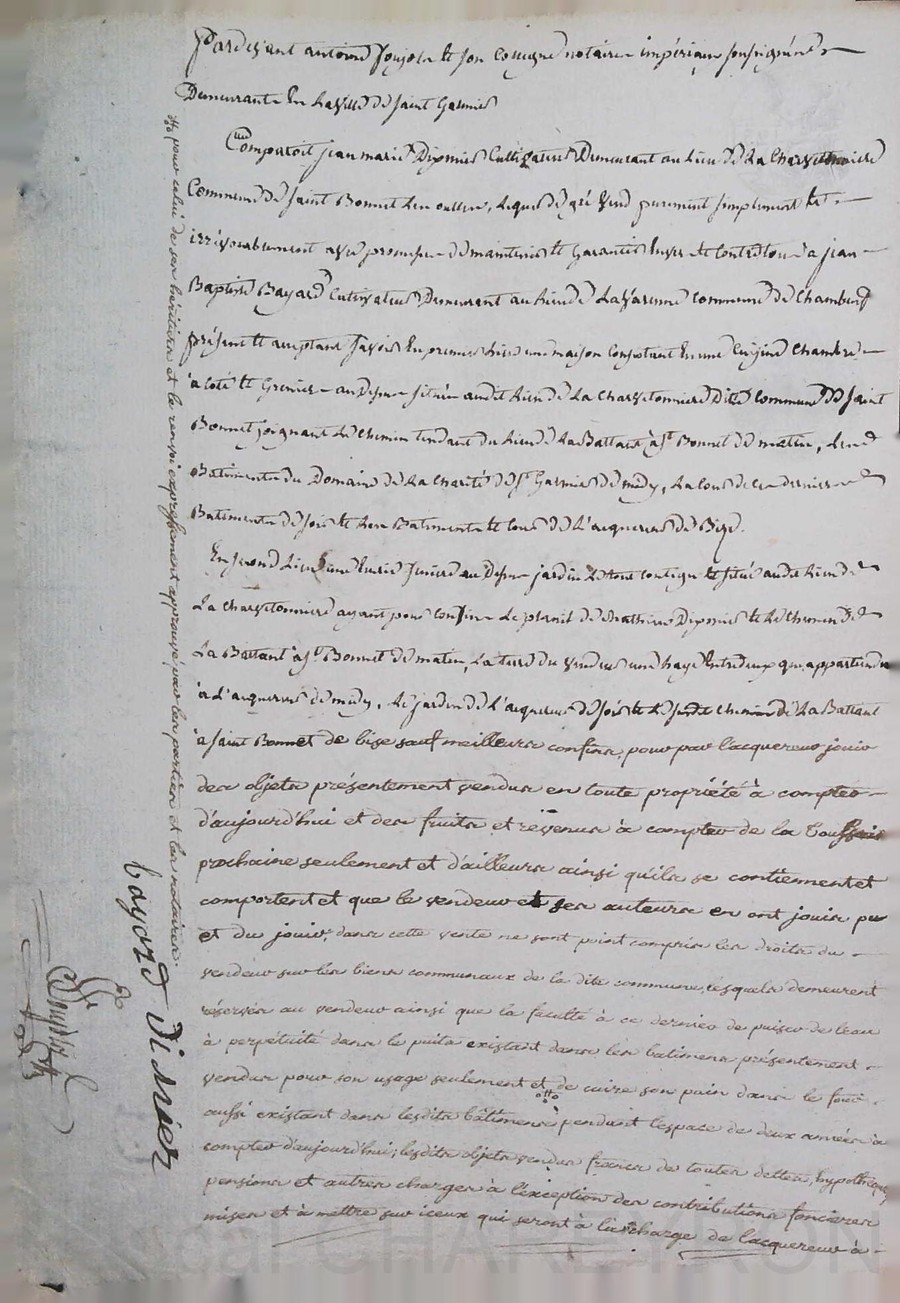 Pardevant antoine Joujou et son collegue notaires impériaux soussignés
Demeurants En La ville de Saint Galmier
Comparoit jean marie Dizmier Cultivateur Demeurant au Lieu de La Charvetonniere
Commune de Saint Bonnet Les oulles, Lequel de gré vend purement simplement et
irrévocablement avec promesse de maintenir et Garantir Envers et Contre tous à jean
Baptiste Bayard Cultivateur Demeurant au Lieu de La Varenne commune de Chambeuf
présent et acceptant Savoir En premier Lieu une maison Consistant En une Cuisine Chambre
à côté et Grenier au Dessus située audit Lieu de La Charvetonniere Dite Commune de Saint
Bonnet joignant Le Chemin tendant du Lieu de La Battant à St Bonnet de matin, Les
Batiments du Domaine de La Charité de St Galmier de midy, La Cour de ce dernier
Batiments de soir et Les Batiments et Cour de L'acquereur de Bize.
En second Lieu une au Dessus jardin Le tout contigu et situé audit Lieu de
La Charvetonniere ayant pour confins Le de Mathieu Dizmier et Le Chemin de
La Battant à St Bonnet de matin, La terre du vendeur une haye Entredeux qui appartiendra
à L'acquereur de midy, Le jardin de L'acquereur de soir et Le susdit Chemin de La Battant
à Saint Bonnet de bise sauf meilleurs confins, pour par lacquereur jouir
des objets présentement vendus en toute propriété à compter
d'aujourd'hui et des fruits et revenus à compter de la Toussaint
prochaine seulement et d'ailleurs ainsi qu'ils se contiennent et
comportent et que le vendeur et ses auteurs en ont jouis pu
et du jouir, dans cette vente ne sont point compris les droits du
vendeur sur les biens communaux de la dite commune, lesquels demeurent
réservés au vendeur ainsi que la faculté à ce dernier de puiser de leau
à perpétuité dans le puits existant dans les batimens présentement
vendus pour son usage seulement et de cuire son pain dans le four
aussi existant dans lesdits bâtimens pendant lespace de deux années à
compter d'aujourd'hui; lesdits objets vendus francs de toutes dettes, hypotheques,
pensions et autres charges à l'exception des contributions foncieres
mises et à mettre sur iceux qui seront à la charge de lacquereur à
pour celui de ses héritiers et le renvoi expressement approuvé par les parties et les notaires.
bayard
dimier